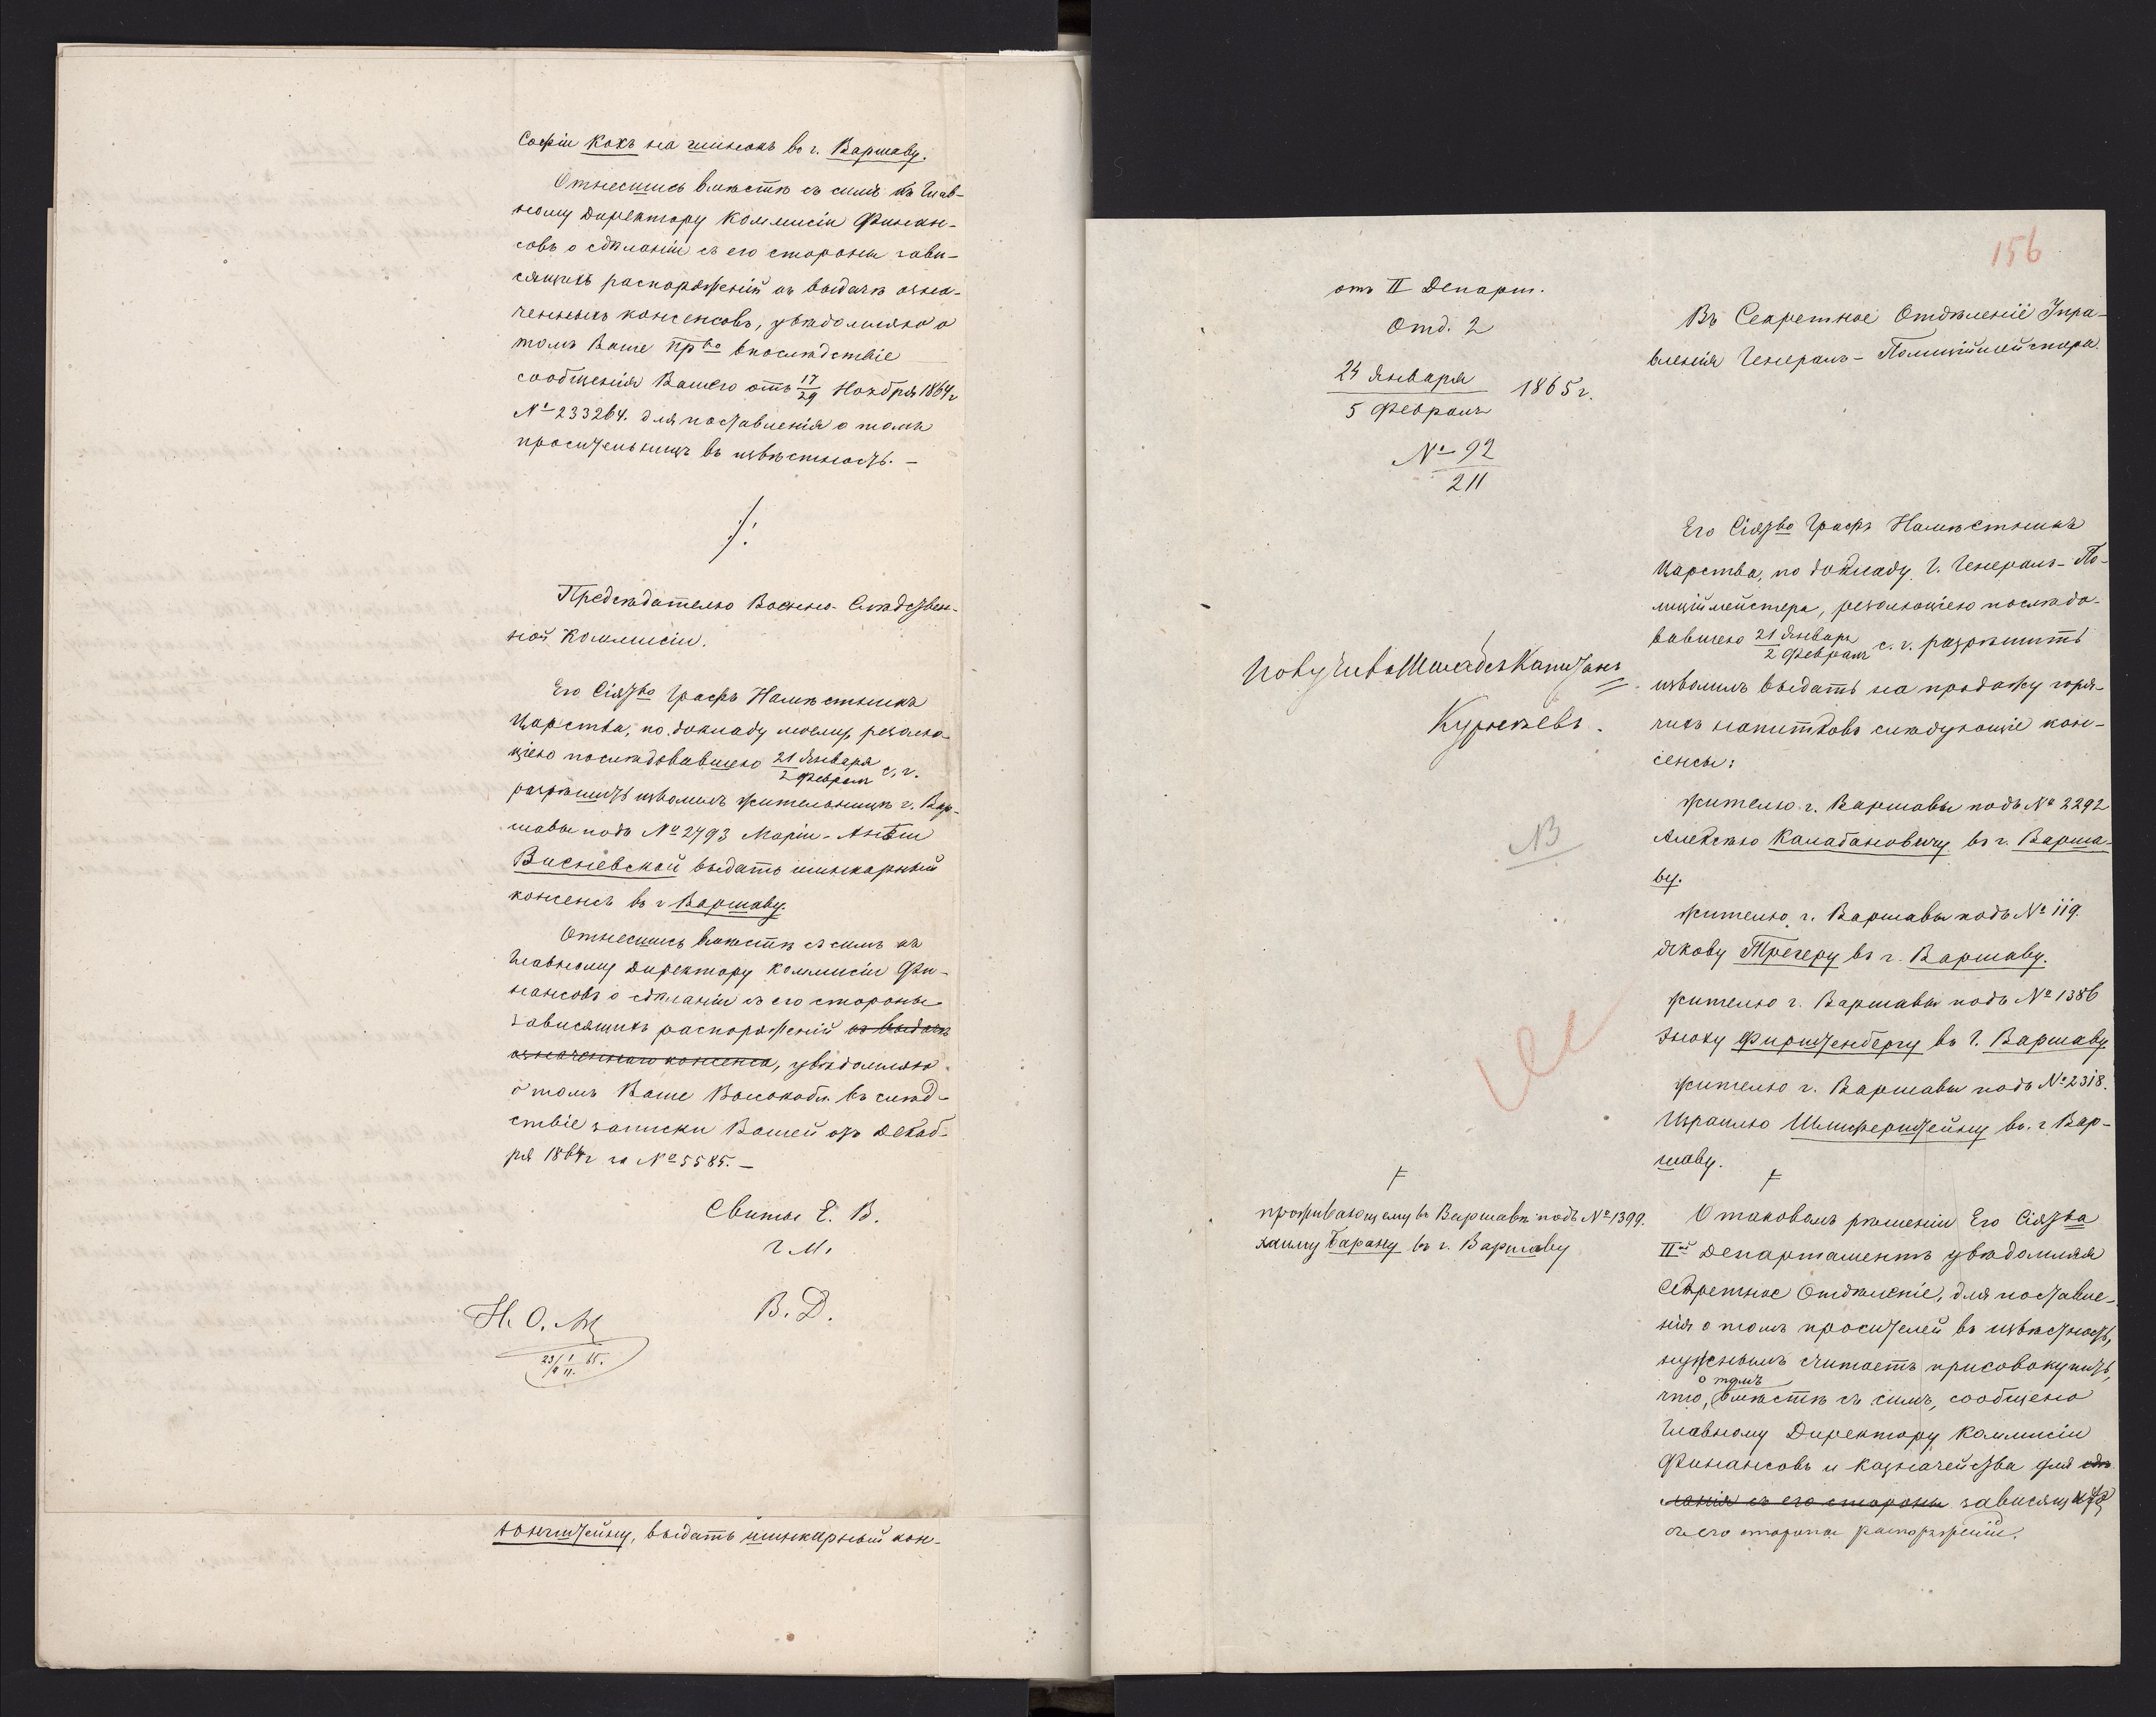 Софіи Кохъ на шинокъ въ г. Варшаву.
Отнесшись вмѣстѣ съ симъ къ Глав-
ному Директору Коммисіи Финан-
совъ о сдѣланіи съ его стороны зави-
сящихъ распоряженій къ выдачѣ озна-
ченныхъ консенсовъ, увѣдомляю о
томъ Ваше Прво впослѣдствіе
сообщенія Вашего отъ 17/29 Ноября 1864 г
№ 233264. для поставленія о томъ
просительницъ въ извѣстность. —
Предсѣдателю Военно-Слѣдствен-
ной Коммисіи.
Его Сіятво Графъ Намѣстникъ
Царства, по докладу моему, резолю-
ціею послѣдовавшею 21 Января/2 Феврал с. г.
разрѣшить изволилъ жительницѣ г. Вар-
шавы подъ № 2793 Маріи-Аннѣ
Висневской выдать шинкарный
консенсъ въ г Варшаву.
Отнесшись вмѣстѣ съ симъ къ
Главному Директору Коммисіи Фи-
нансовъ о сдѣланіи съ его стороны
зависящихъ распоряженій къ выдачѣ
означеннаго консенса, увѣдомляю
о томъ Ваше Высокобл. въ слѣд-
ствіе записки Вашей отъ Декаб-
ря 1864 г за № 5585. —
Свиты Е. В.
Г М.
В. Д.
Н. О.
23/1 65.
выдать шинкарный кон-
156
отъ II Департ.
Отд. 2
24 Января/5 Февраля 1865 г.
№ 92
211
Въ Секретное Отдѣленіе Упра-
вленія Генералъ-Полиціймейстера.
Его Сіятво Графъ Намѣстникъ
Царства, по докладу Г. Генералъ-По-
лиціймейстера, резолюціею послѣдо-
вавшею 21 Января/2 Феврал с. г. разрѣшить
изволилъ выдать на продажу горя-
чихъ напитковъ слѣдующіе кон-
сенсы:
Штабсъ Капитанъ
NB
жителю г. Варшавы подъ № 2292
Алексѣю Калабановичу въ г. Варша-
ву.
жителю г. Варшавы подъ № 119.
Якову Трегеру въ г. Варшаву.
жителю г. Варшавы подъ № 1386
Эноху Фирштенбергу въ Г. Варшаву
жителю г. Варшавы подъ № 2318.
Израилю въ г. Вар-
шаву.
проживающему въ Варшавѣ подъ № 1399.
Хаиму Барану въ г. Варшаву
О таковомъ рѣшеніи Его Сіятва
IIй Департаментъ увѣдомляя
Секретное Отдѣленіе, для поставле-
нія о томъ просителей въ извѣстность,
нужнымъ считаетъ присовокупить,
о томъ
что, вмѣстѣ съ симъ, сообщено
Главному Директору Коммисіи
Финансовъ и Казначейства для сдѣ
ланія съ его стороны зависящихъ
съ его стороны распоряженій.